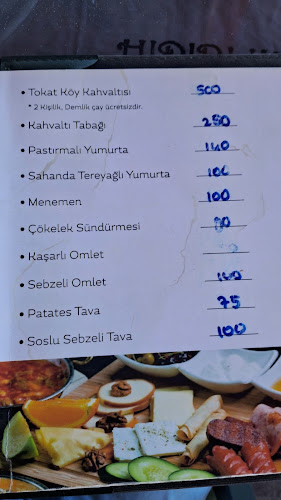 • Tokat Köy Kahvaltısı 500
* 2 Kişilik, Demlik çay ücretsizdir.
• Kahvaltı Tabağı 250
• Pastırmalı Yumurta 140
• Sahanda Tereyağlı Yumurta 100
• Menemen 100
• Çökelek Sündürmesi
• Kaşarlı Omlet
• Sebzeli Omlet
• Patates Tava 75
• Soslu Sebzeli Tava 100